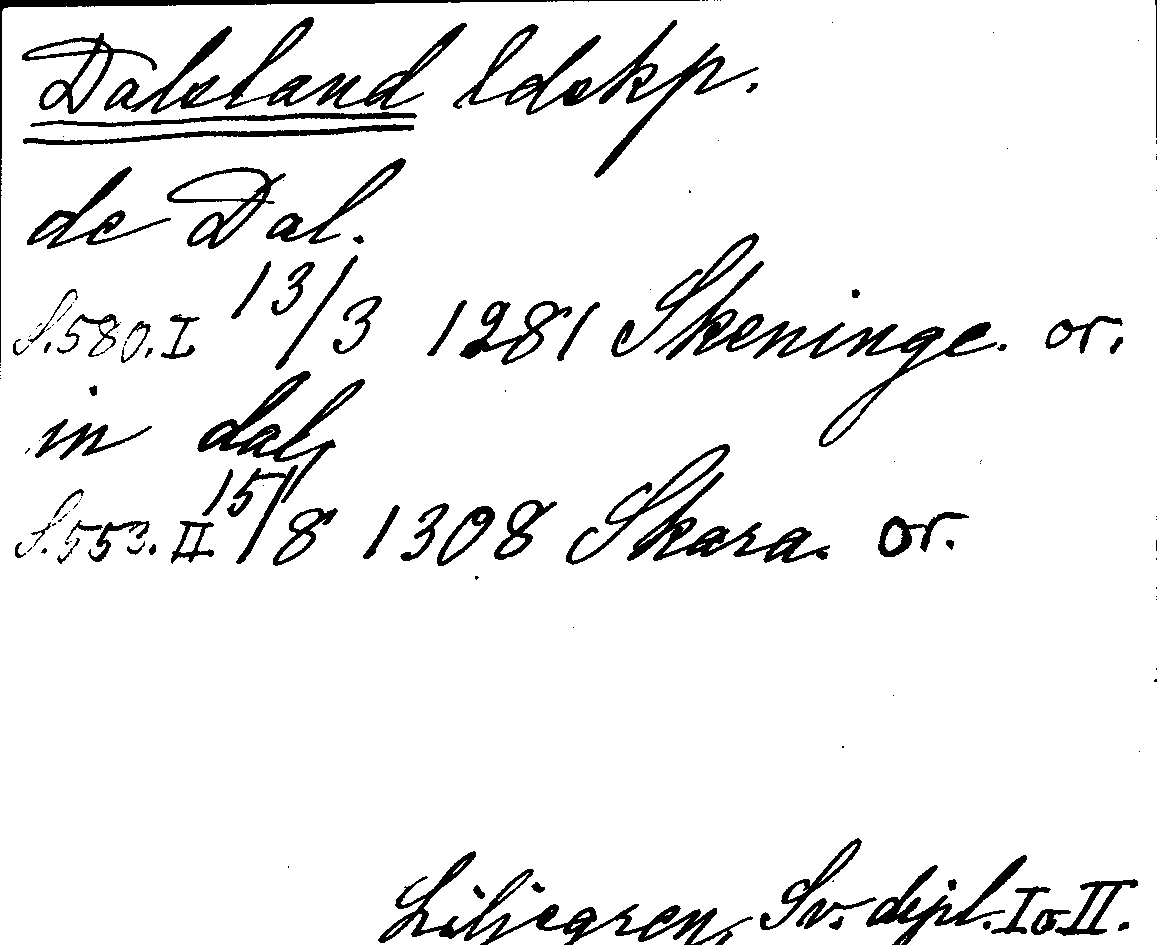 Dalsland ldskp.
de Dal.
S. 580. I. 13/3 1281 Skeninge. or.
in dal,
S. 553. II. 15/8 1308 Skara. or.
Liljegren, Sv. dipl. I o. II.